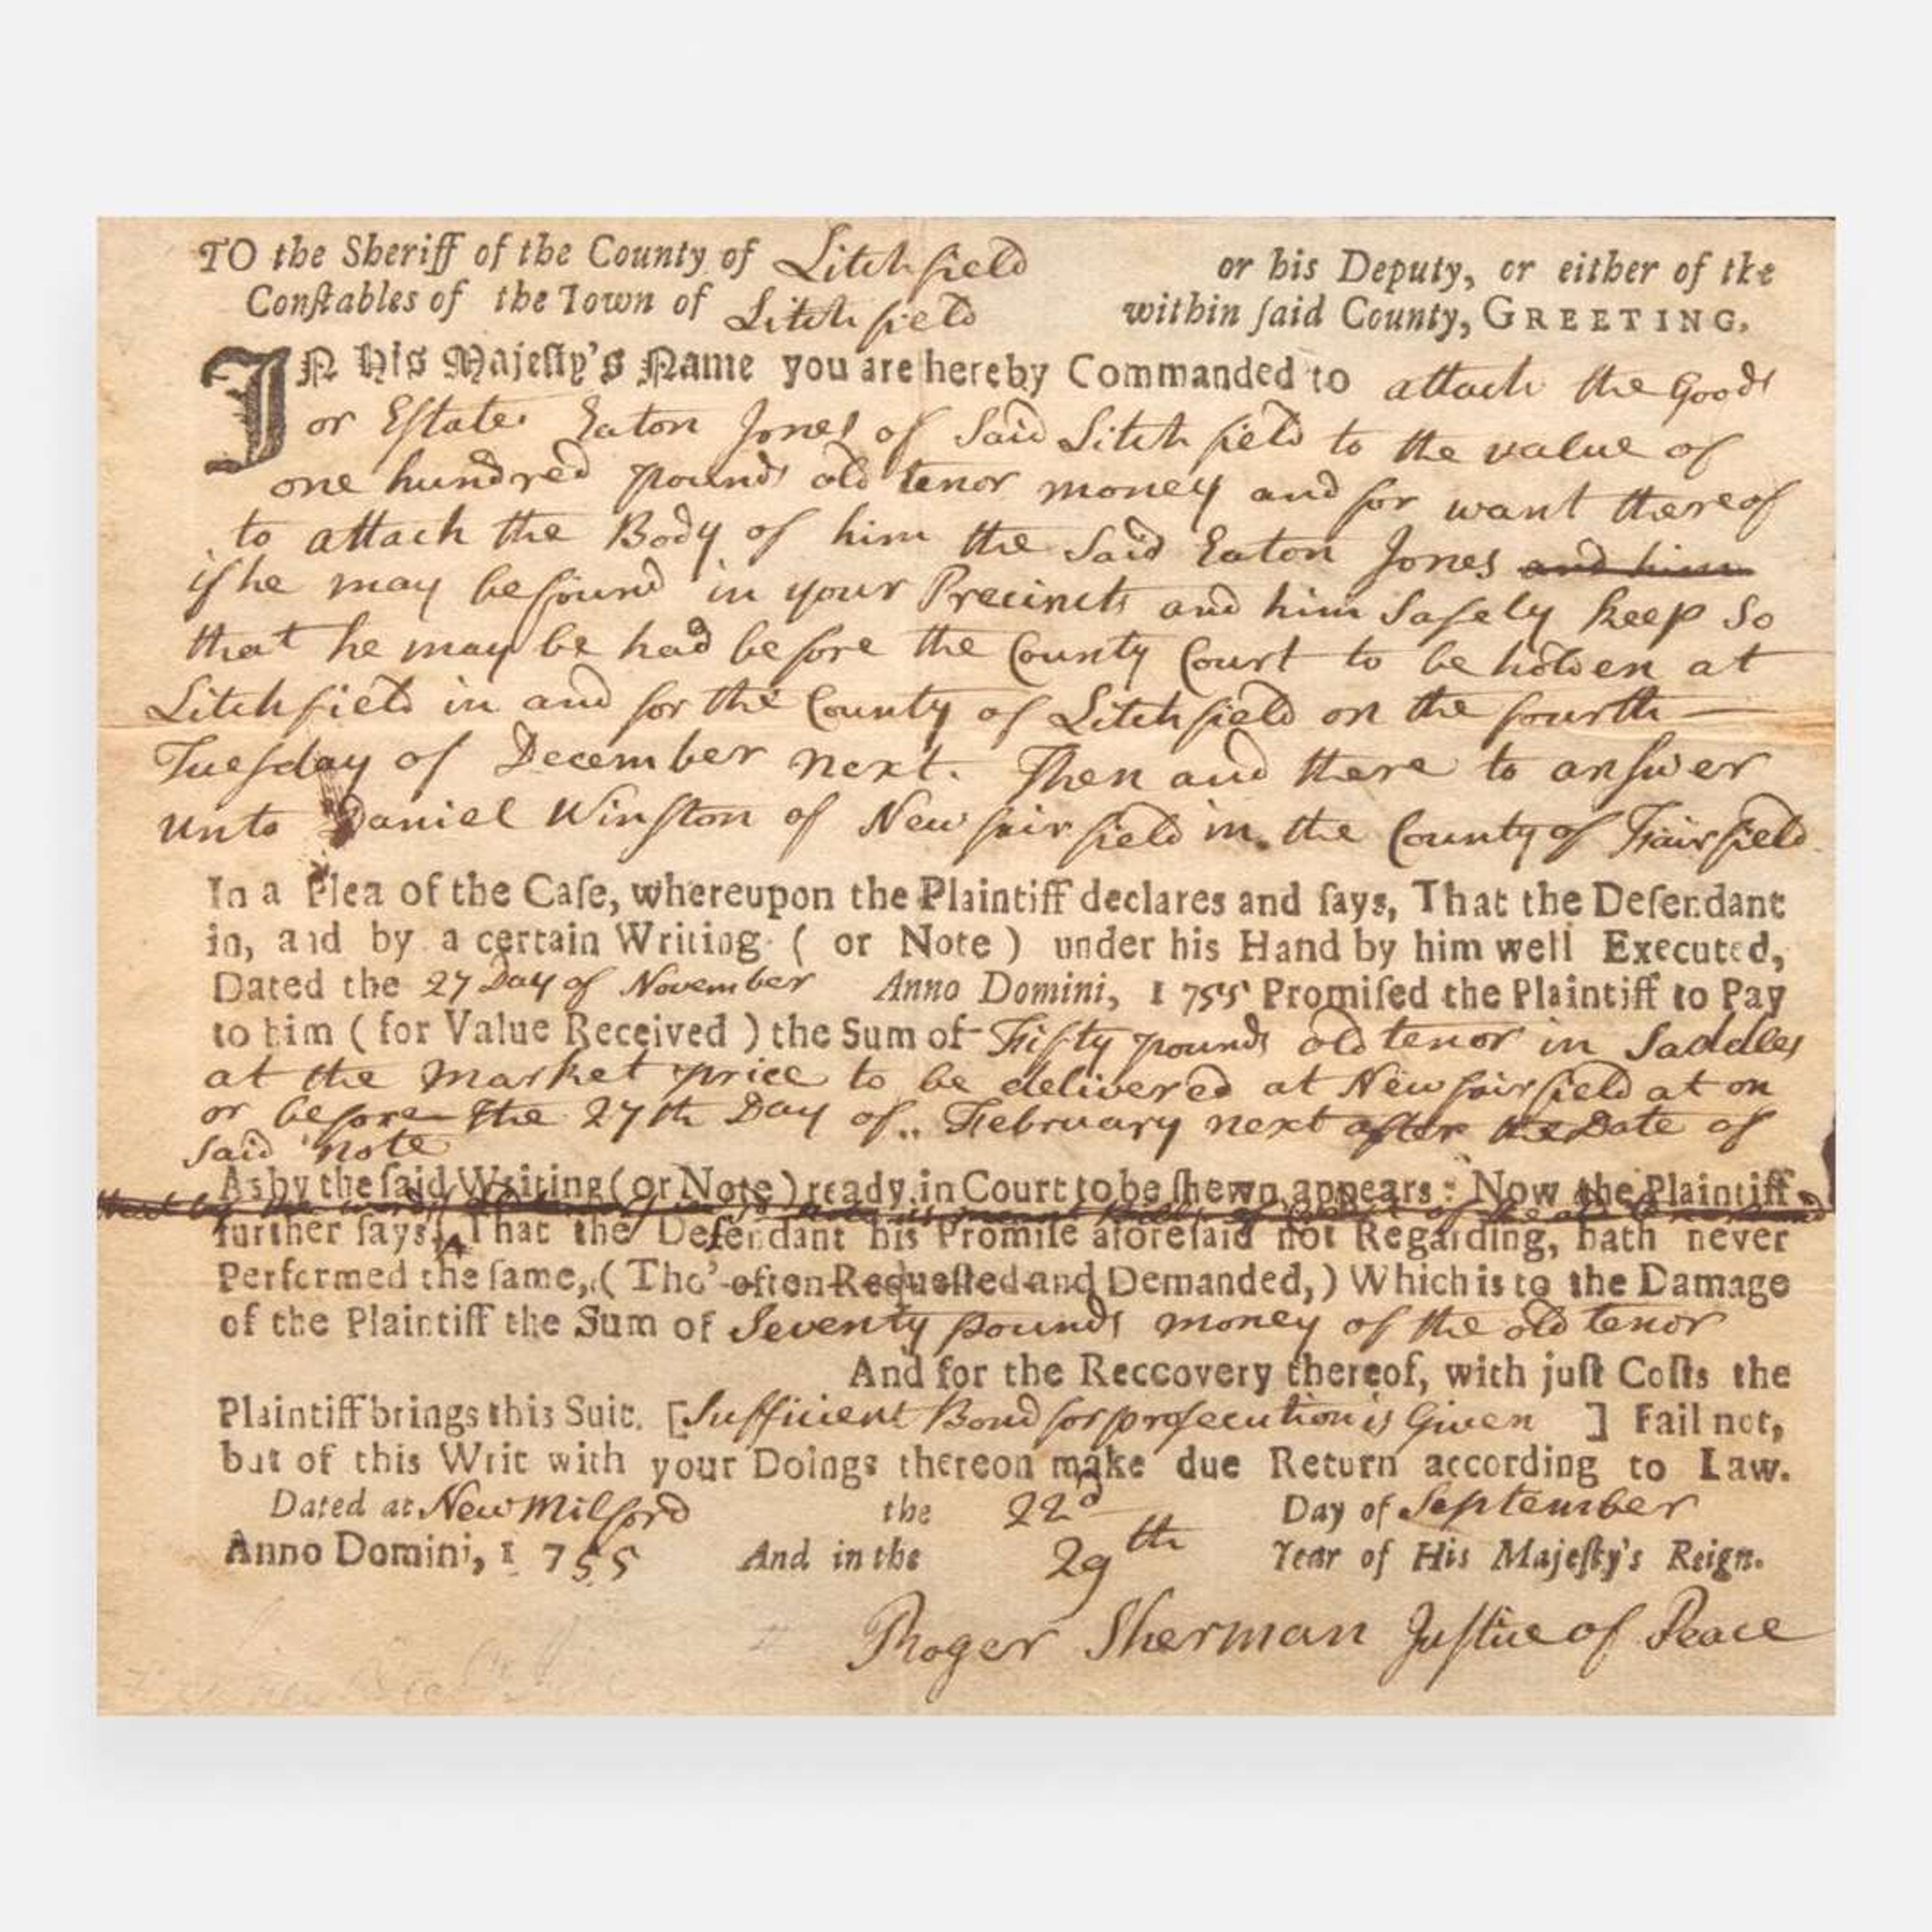 TO the Sheriff of the County of Litchfield or his Deputy, or either of the
Conſtables of the Town of Litchfield within ſaid County, GREETING.
IN His Majeſty's Name you are hereby Commanded to attach the Goods
or Eſtate Eaton Jones of Said Litchfield to the value of
one hundred pounds old tenor money and for want thereof
to attach the Body of him the Said Eaton Jones and him
if he may be found in your Precincts and him Safely keep So
that he may be had before the County Court to be holden at
Litchfield in and for the County of Litchfield on the fourth
Tueſday of December next. Then and there to anſwer
unto Daniel Winſton of Newfairfield in the County of Fairfield
In a Plea of the Caſe, whereupon the Plaintiff declares and ſays, That the Defendant
in, and by a certain Writing ( or Note ) under his Hand by him well Executed,
Dated the 27 Day of November Anno Domini, 1755 Promiſed the Plaintiff to Pay
to him ( for Value Received ) the Sum of Fifty pounds old tenor in Saddles
at the Market price to be delivered at Newfairfield at on
or before the 27th Day of February next after the Date of
Said note
As by the ſaid Writing ( or Note ) ready in Court to be ſhewn appears : Now the Plaintiff
further ſays, That the Defendant his Promiſe aforeſaid not Regarding, hath never
Performed the ſame, ( Tho' often Requeſted and Demanded, ) Which is to the Damage
of the Plaintiff the Sum of Seventy pounds money of the old tenor
And for the Reccovery thereof, with juſt Coſts the
Plaintiff brings this Suit. [Sufficient Bond for proſecution is Given ] Fail not,
but of this Writ with your Doings thereon make due Return according to Law.
Dated at New Milford the 22d Day of September
Anno Domini, 1755 And in the 29th Year of His Majeſty's Reign.
Roger Sherman Juſtice of Peace